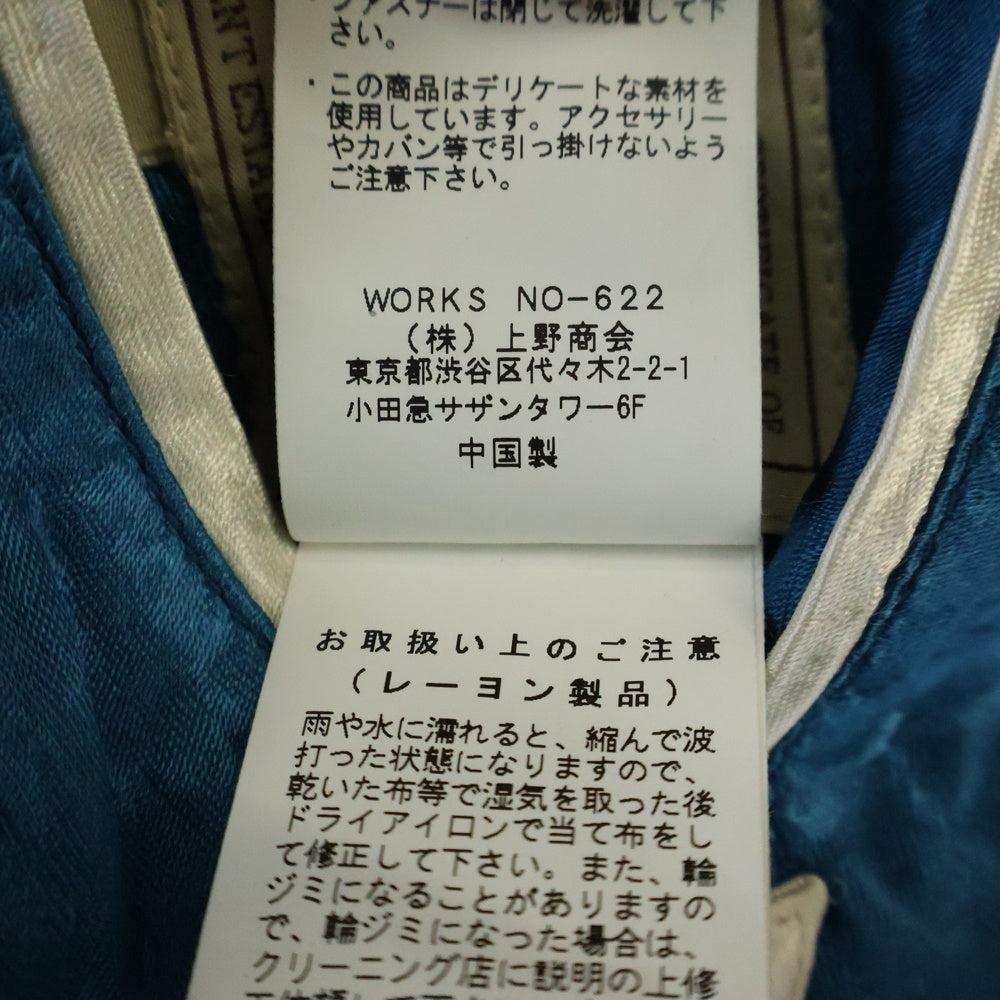 ・ファスナーは閉じて洗濯して下
さい。
・この商品はデリケートな素材を
使用しています。アクセサリー
やカバン等で引っ掛けないよう
ご注意下さい。
WORKS NO-622
(株)上野商会
東京都渋谷区代々木2-2-1
小田急サザンタワー6F
中国製
お取扱い上のご注意
(レーヨン製品)
雨や水に濡れると、縮んで波
打った状態になりますので、
乾いた布等で湿気を取った後
ドライアイロンで当て布をし
て修正して下さい。また、輪
ジミになることがありますの
で、輪ジミになった場合は、
クリーニング店に説明の上修